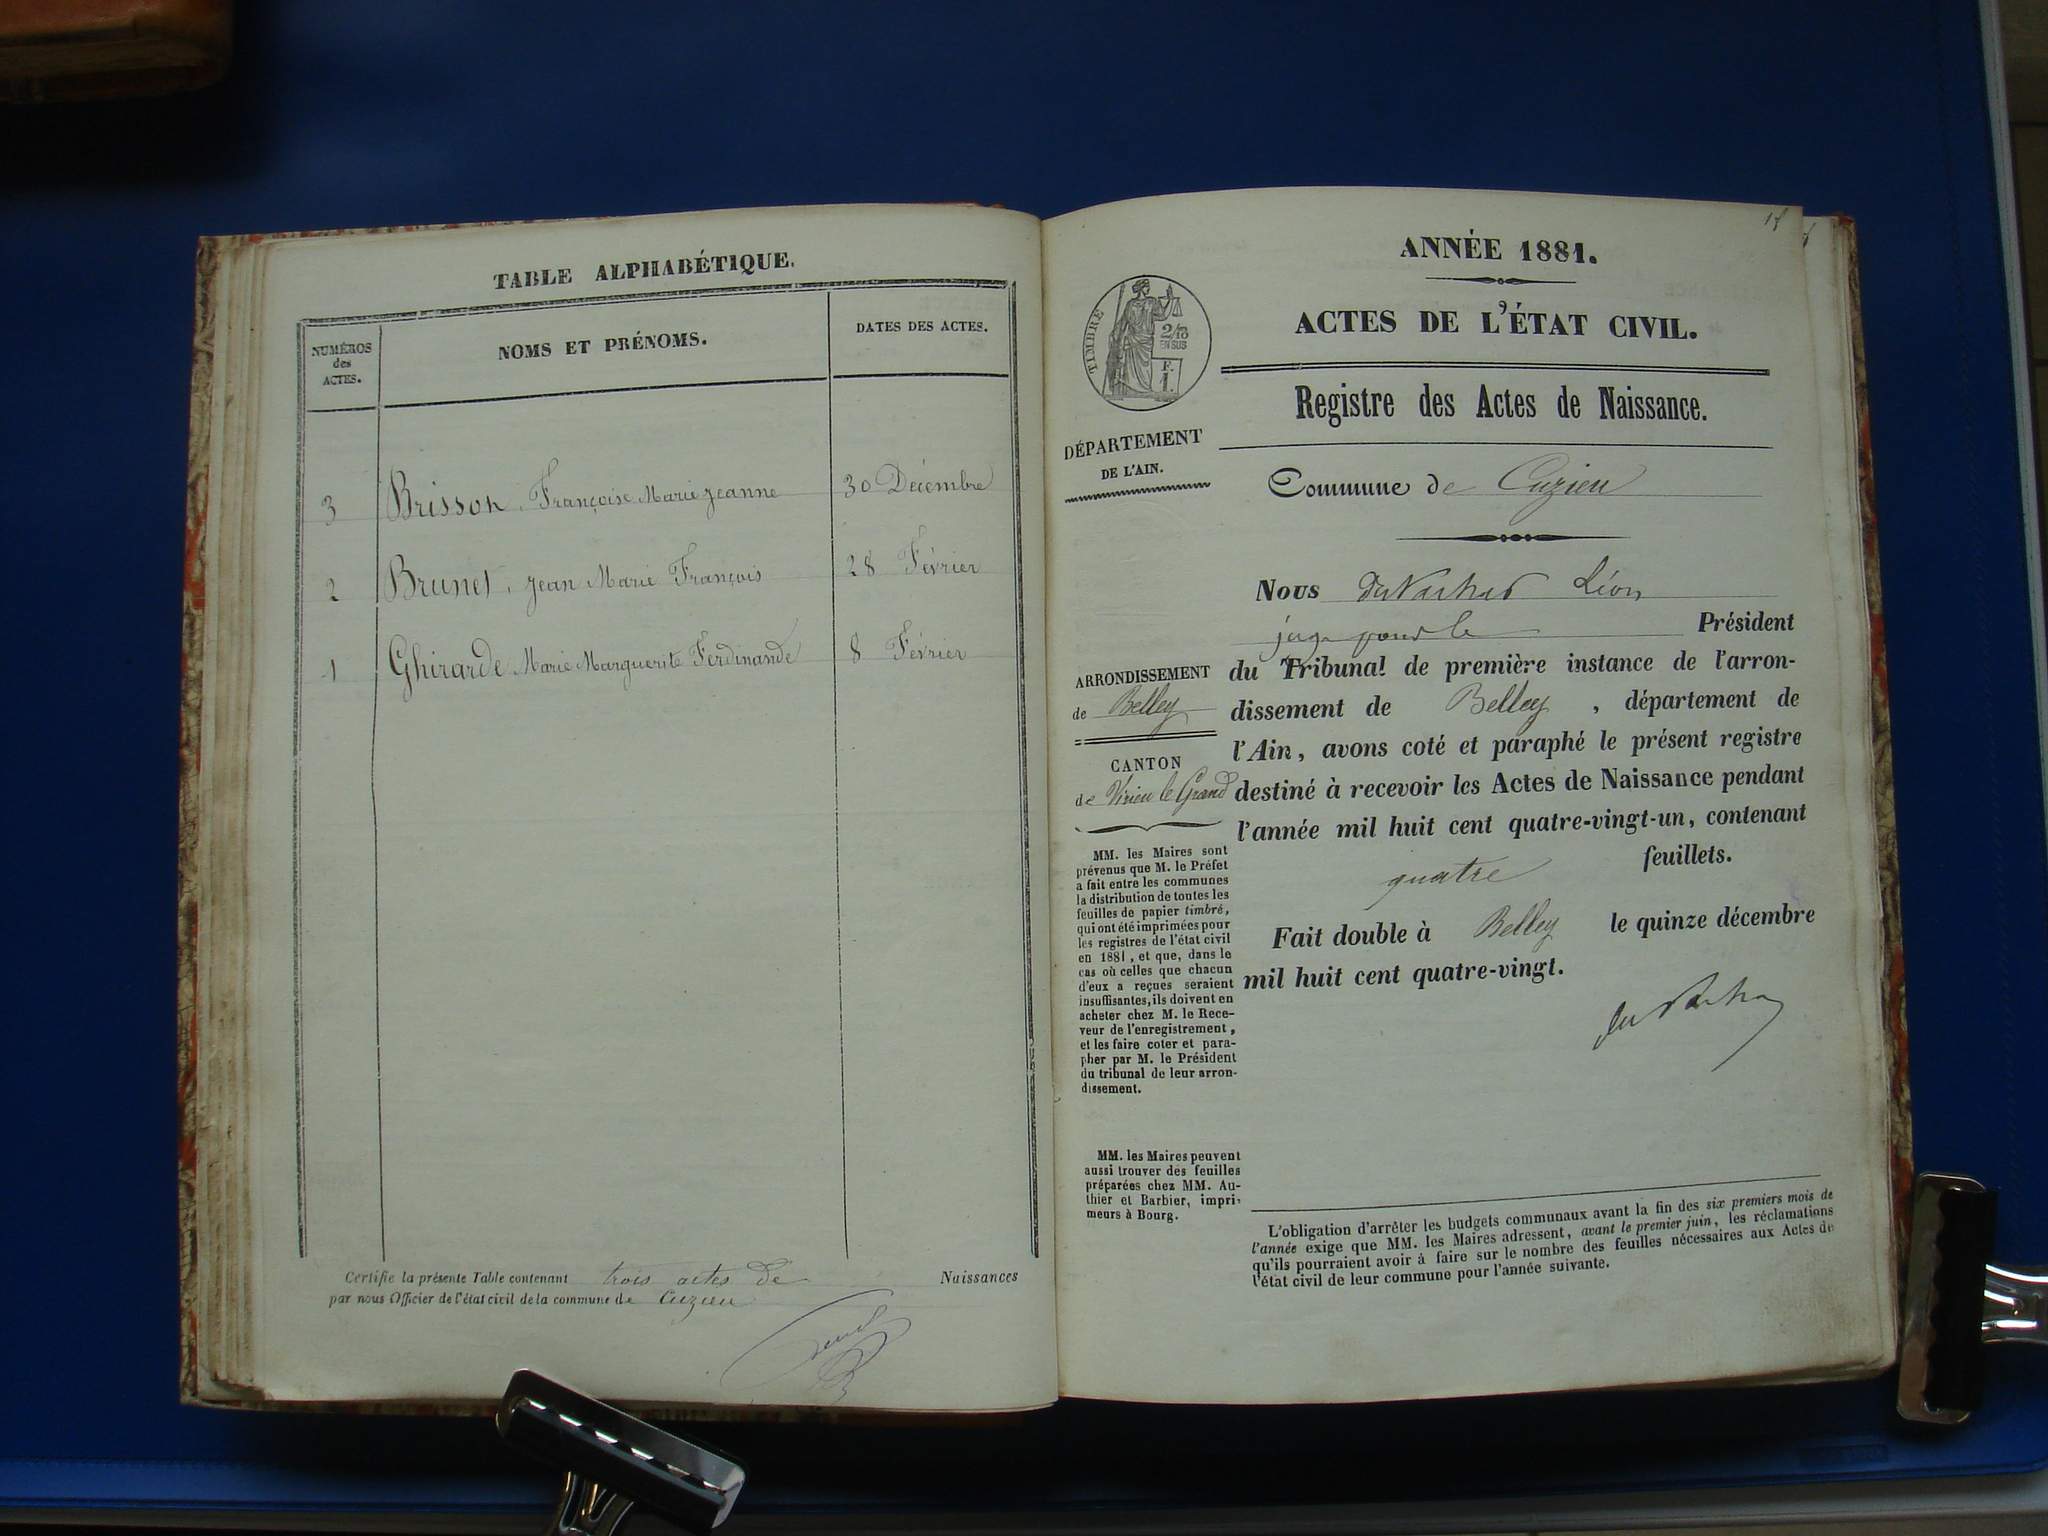 TABLE ALPHABÉTIQUE.
NUMÉROS
des
ACTES.
NOMS ET PRÉNOMS.
DATES DES ACTES.
3 Brisson, Françoise Marie Jeanne 30 Décembre
2 Brunet, Jean Marie François 28 Février
1 Ghirarde Marie Marguerite Ferdinande 8 Février
Certifie la présente Table contenant trois actes de Naissances
par nous Officier de l'état civil de la commune de Cuzieu
ANNÉE 1881.
ACTES DE L'ÉTAT CIVIL.
TIMBRE
2/10
EN SUS
F.
1.
Registre des Actes de Naissance.
DÉPARTEMENT
DE L'AIN.
Commune de Cuzieu
Nous Léon
juge pour le Président
du Tribunal de première instance de l'arron-
dissement de Belley, département de
l'Ain, avons coté et paraphé le présent registre
destiné à recevoir les Actes de Naissance pendant
l'année mil huit cent quatre-vingt-un, contenant
quatre feuillets.
Fait double à Belley le quinze décembre
mil huit cent quatre-vingt.
ARRONDISSEMENT
de Belley
CANTON
de Virieu le Grand
MM. les Maires sont
prévenus que M. le Préfet
a fait entre les communes
la distribution de toutes les
feuilles de papier timbré,
qui ont été imprimées pour
les registres de l'état civil
en 1881, et que, dans le
cas où celles que chacun
d'eux a reçues seraient
insuffisantes, ils doivent en
acheter chez M. le Rece-
veur de l'enregistrement,
et les faire coter et para-
pher par M. le Président
du tribunal de leur arron-
dissement.
MM. les Maires peuvent
aussi trouver des feuilles
préparées chez MM. Au-
thier et Barbier, impri-
meurs à Bourg.
L'obligation d'arrêter les budgets communaux avant la fin des six premiers mois de
l'année exige que MM. les Maires adressent, avant le premier juin, les réclamations
qu'ils pourraient avoir à faire sur le nombre des feuilles nécessaires aux Actes de
l'état civil de leur commune pour l'année suivante.